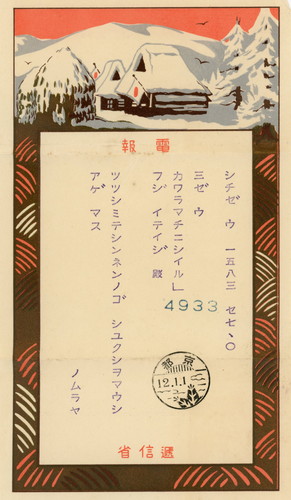 電報
シチゼ ウ 一五八三 セ七、〇
三ゼウ
カワラマチニシイル」
フジ イテイジ 殿
4933
ツツシミテシンネンノゴ シユクシヨマウシ
アゲ マス
ノムラヤ
京都
12.1.1
逓信省